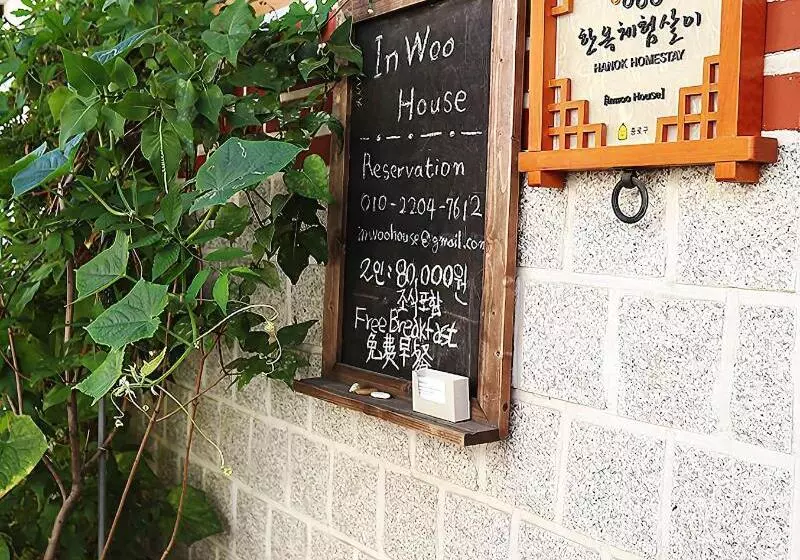 In Woo
House
Reservation
010-2204-7612
inwoohouse@gmail.com
2인: 80,000원
조식포함
Free Breakfast
免費早餐
한옥체험살이
HANOK HOMESTAY
[Inwoo House]
종로구